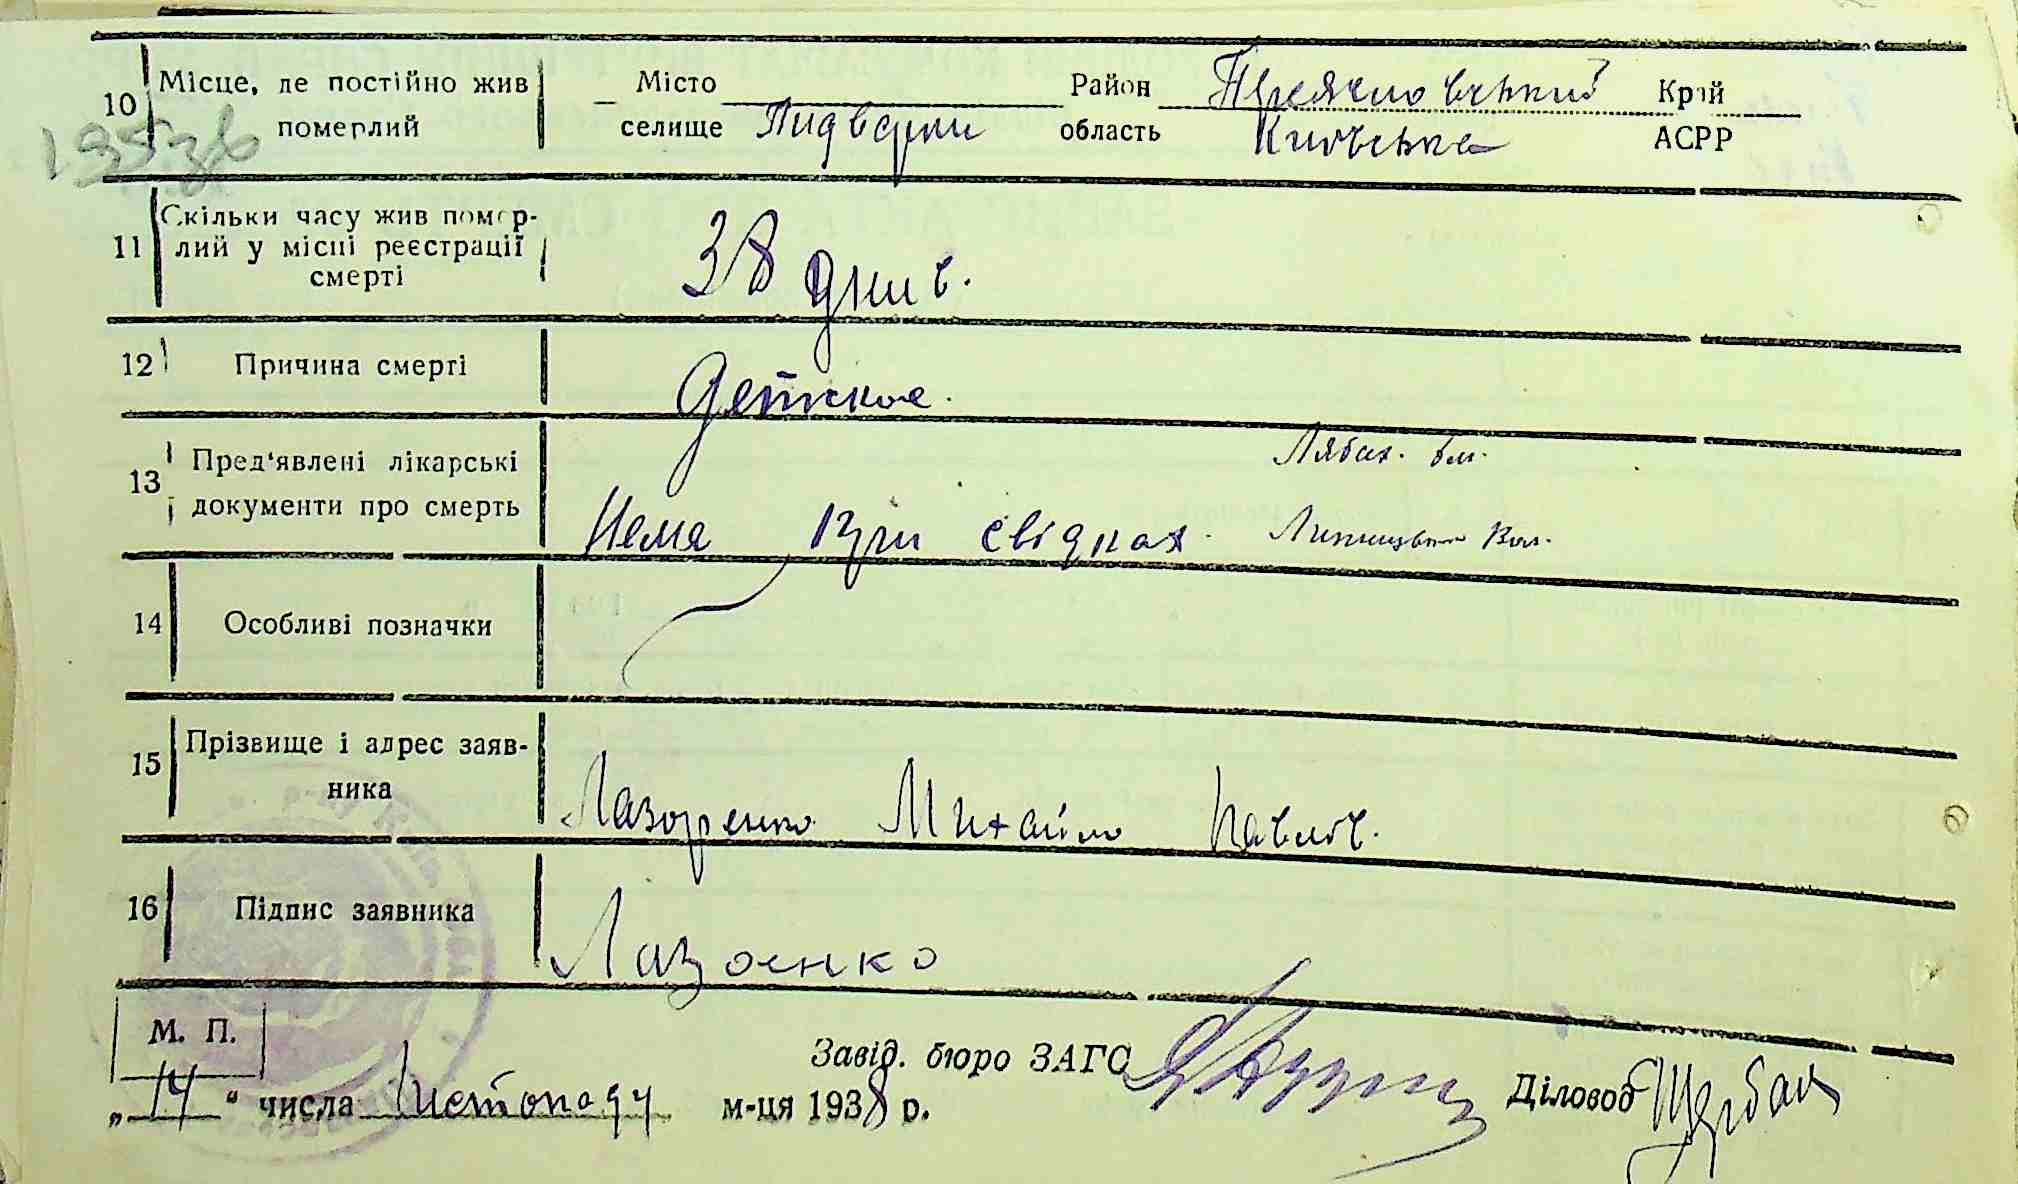 10 Місце, де постійно жив померлий
Місто
Район Край
селище Пидварки область Київська АСРР
11 Скільки часу жив помер-
лий у місці реєстрації
смерті
38 днив.
12 Причина смерті
Детское.
13 Пред'явлені лікарські
документи про смерть
Нема при свідках.
14 Особливі позначки
15 Прізвище і адрес заяв-
ника
Лазоренко Михайло Павлов.
16 Підпис заявника
Лазоенко
М. П.
Завід. бюро ЗАГС
Діловод Щербак
„14“ числа Листопаду м-ця 1938 р.